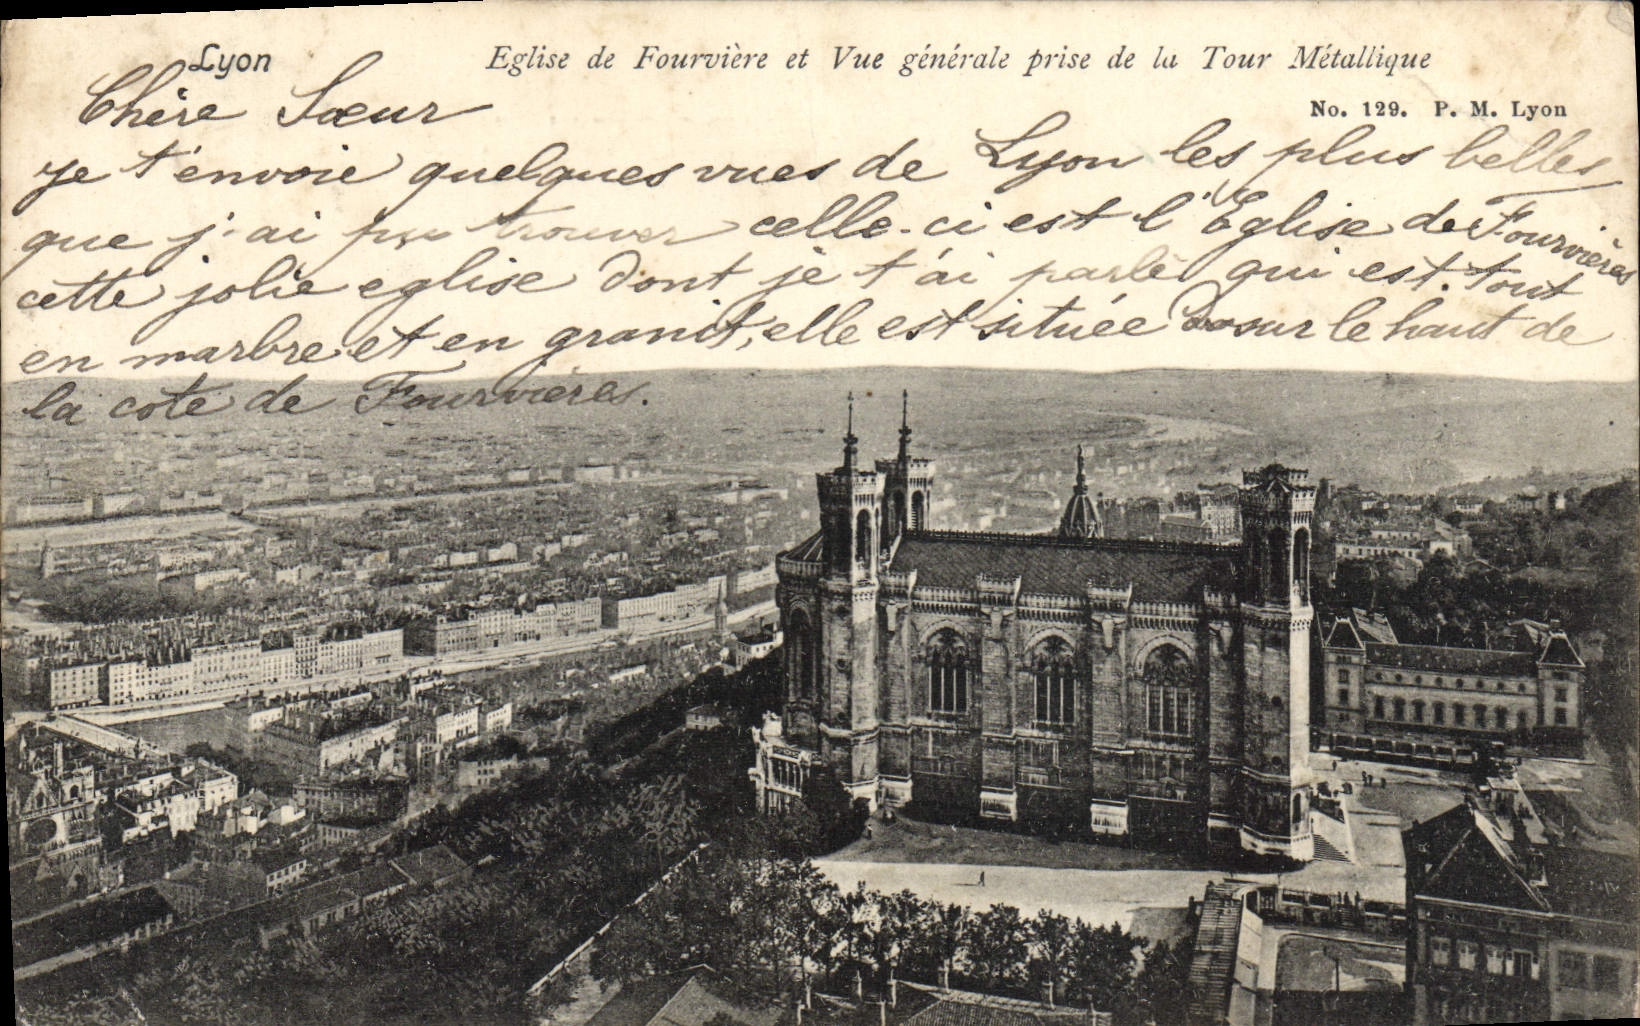 Lyon Eglise de Fourvière et Vue générale prise de la Tour Métallique
No. 129. P. M. Lyon
Chère Sœur
je t'envoie quelques vues de Lyon les plus belles
que j'ai pu trouver celle-ci est l'Eglise de Fourvières
cette jolie eglise dont je t'ai parlé qui est tout
en marbre et en granit, elle est située sur le haut de
la cote de Fourvières.